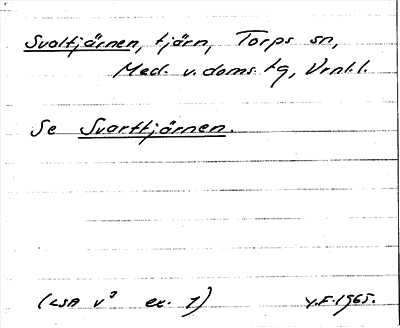 Svaltjärnen, tjärn, Torps sn,
Med. v. doms. tg, Vrnl.l.
Se Svarttjärnen.
(LSA v³ ex. 1) Y.F. 1965.